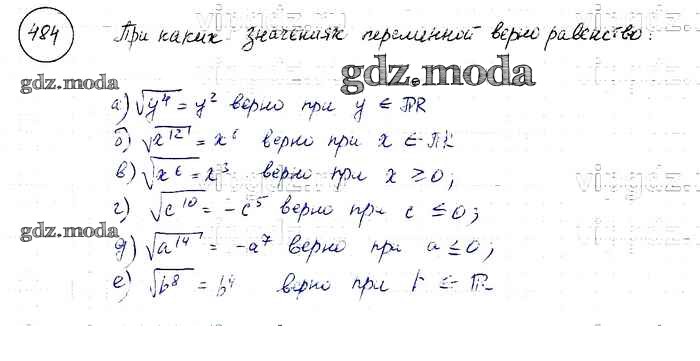 484 При каких значениях переменной верно равенство:
gdz.moda gdz.moda
а) √y⁴ = y² верно при y ∈ ℝ
б) √x¹² = x⁶ верно при x ∈ ℝ
в) √x⁶ = x³ верно при x ≥ 0;
г) √c¹⁰ = -c⁵ верно при c ≤ 0;
gdz.moda
д) √a¹⁴ = -a⁷ верно при a ≤ 0;
е) √b⁸ = b⁴ верно при b ∈ ℝ